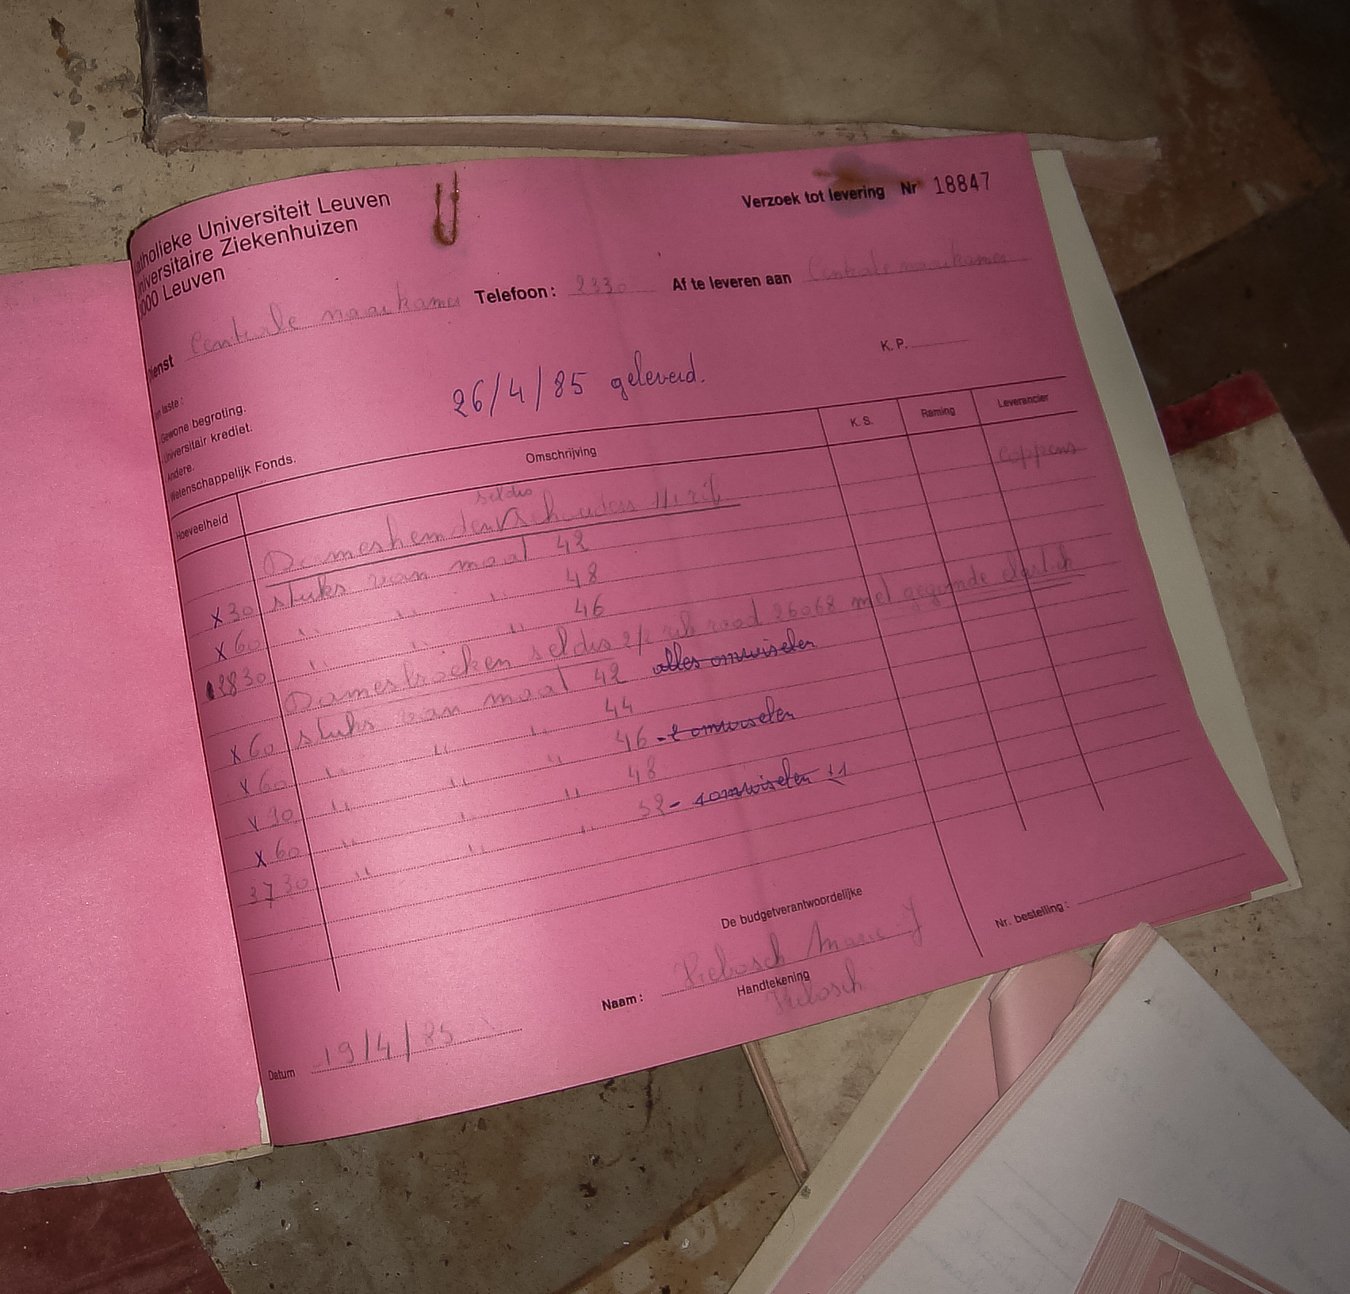 atholieke Universiteit Leuven
niversitaire Ziekenhuizen
000 Leuven
Verzoek tot levering Nr 18847
ienst Centrale naaikamer Telefoon: 2330 Af te leveren aan Centrale naaikamer
n laste:
Gewone begroting.
Universitair krediet.
Andere.
Wetenschappelijk Fonds.
26/4/85 geleverd.
K. P.
Hoeveelheid Omschrijving K. S. Raming Leverancier
seldis Coppens
Dameshemden
x 30 stuks van maat 42
x 60 " " " 48
30 " " " 46
Damesbroeken seldis rood 26068 met gegomde elastiek
x 60 stuks van maat 42 alles omwisselen
x 60 " " " 44
x 30 " " " 46 - omwisselen
x 60 " " " 48
30 " " " 52 - omwisselen
De budgetverantwoordelijke
Naam: Marie J
Handtekening
Nr. bestelling:
Datum 19/4/85